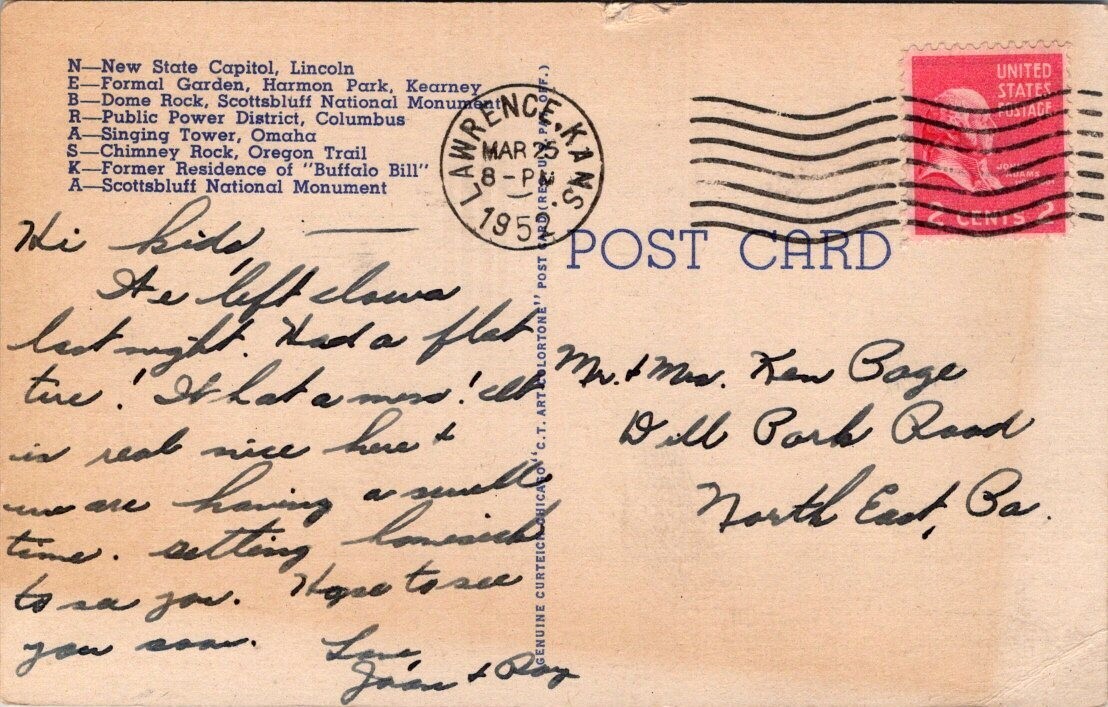 N—New State Capitol, Lincoln
E—Formal Garden, Harmon Park, Kearney
B—Dome Rock, Scottsbluff National Monument
R—Public Power District, Columbus
A—Singing Tower, Omaha
S—Chimney Rock, Oregon Trail
K—Former Residence of "Buffalo Bill"
A—Scottsbluff National Monument
Hi kids,
We left Iowa
last night. Had a flat
tire! What a mess! It
is real nice here +
we are having a swell
time. Getting homesick
to see you. Hope to see
you soon.
Love
Joan + Ray
GENUINE CURTEICH-CHICAGO "C.T. ART-COLORTONE" POST CARD (REG. U.S. PAT. OFF.)
LAWRENCE, KANS.
MAR 25
8 - PM
1952
UNITED
STATES
POSTAGE
JOHN
ADAMS
2 CENTS 2
POST CARD
Mr. + Mrs. Ken Bage
Dill Park Road
North East, Pa.